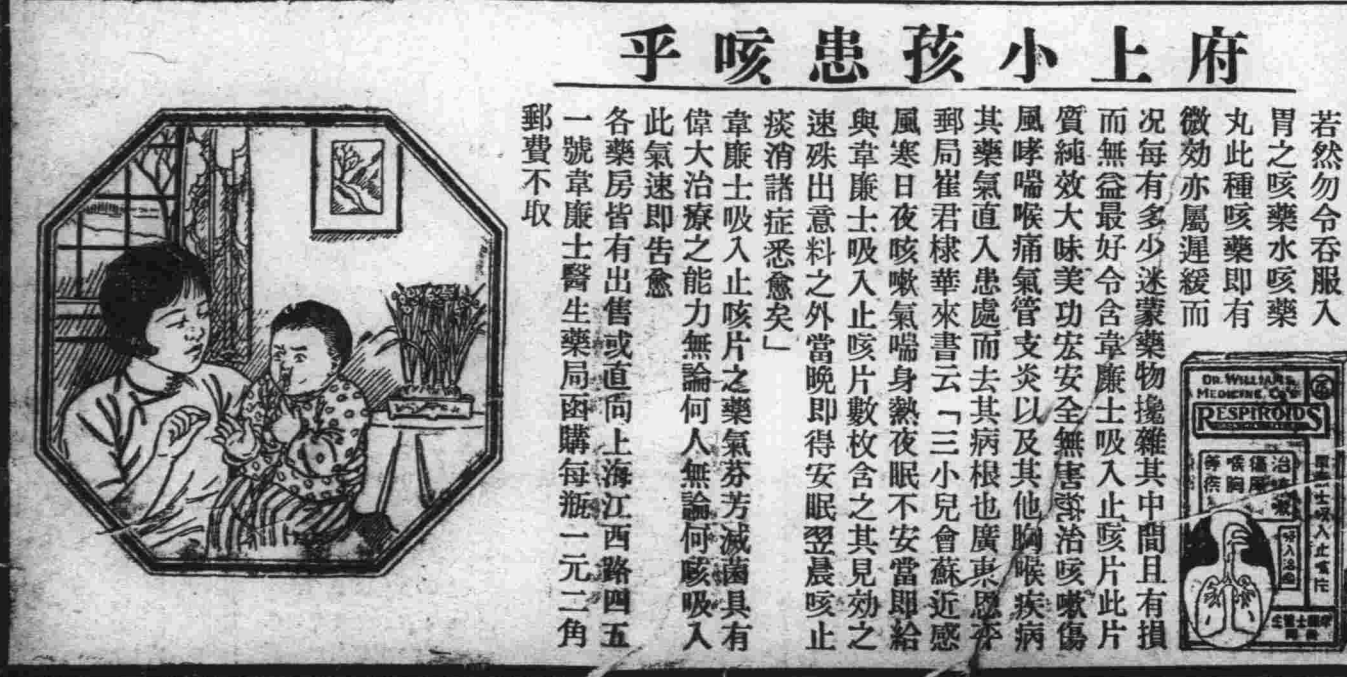 府上小孩患咳乎
若然勿令吞服入
胃之咳藥水咳藥
丸此種咳藥即有
微効亦屬遲緩而
况每有多少迷蒙藥物攙雜其中間且有損
而無益最好令含韋廉士吸入止咳片此片
質純效大味美功宏安全無害能治咳嗽傷
風哮喘喉痛氣管支炎以及其他胸喉疾病
其藥氣直入患處而去其病根也廣東恩平
郵局崔君棣華來書云「三小兒會蘇近感
風寒日夜咳嗽氣喘身熱夜眠不安當即給
與韋廉士吸入止咳片數枚含之其見効之
速殊出意料之外當晚即得安眠翌晨咳止
痰消諸症悉愈矣」
韋廉士吸入止咳片之藥氣芬芳滅菌具有
偉大治療之能力無論何人無論何咳吸入
此氣速即告愈
各藥房皆有出售或直向上海江西路四五
一號韋廉士醫生藥局函購每瓶一元二角
郵費不取
DR. WILLIAMS
MEDICINE CO'S
RESPIROIDS
治咳嗽
傷風
喉胸
等疾
韋廉士吸入止咳片